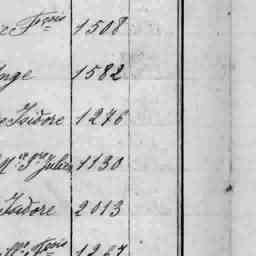 e Fçois 1508
Ange 1582
e Isidore 1276
Mce Pre Julien 1130
Isidore 2013
Fçois 1267